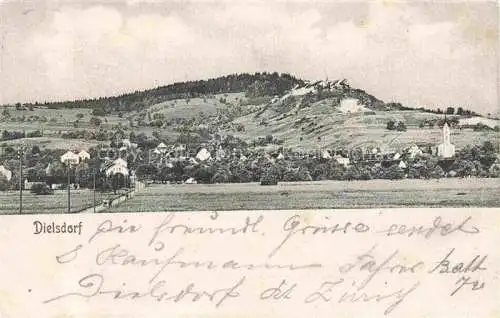 Dielsdorf
Die freundl. Grüsse sendet
Kaufmann
Dielsdorf Kt Zürich